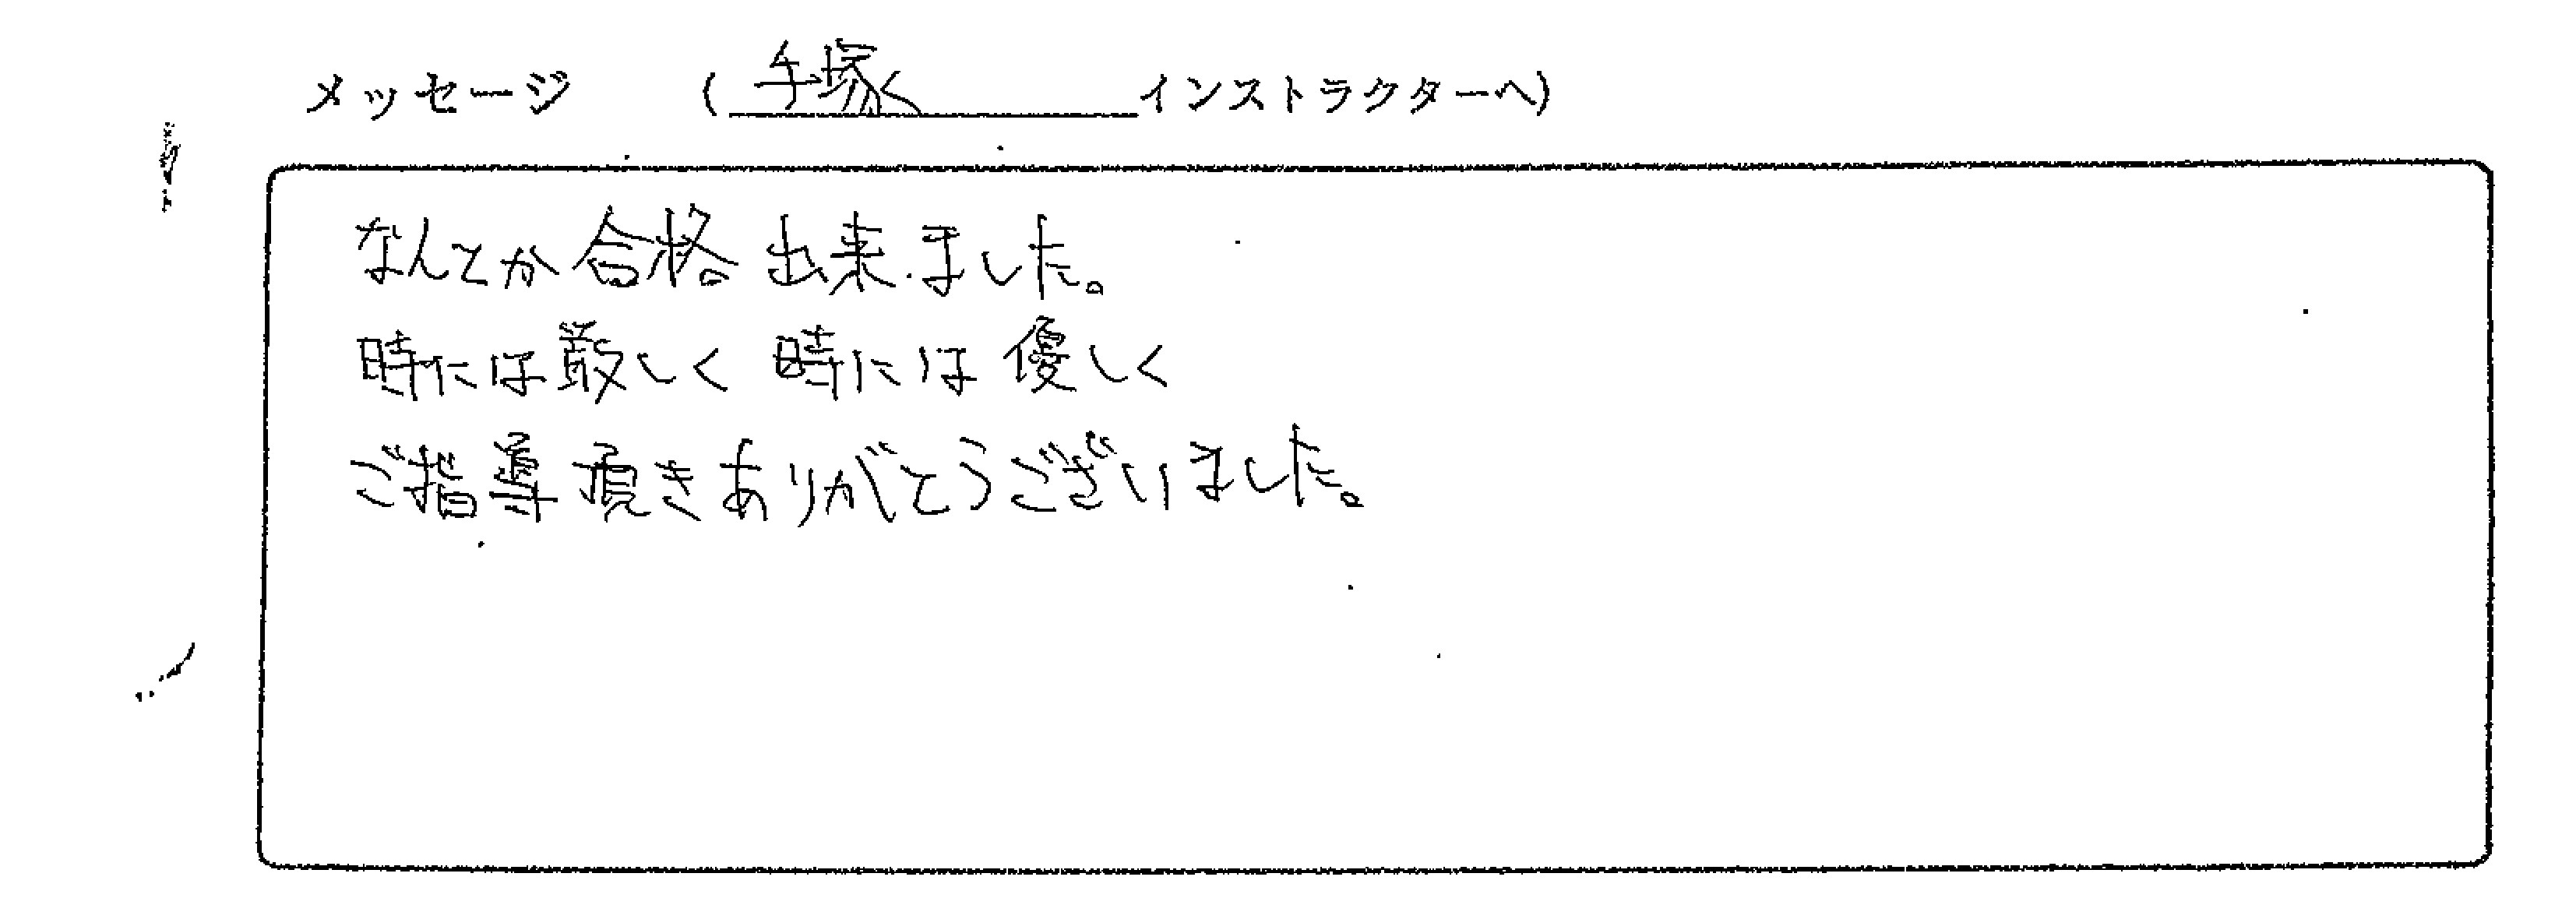 メッセージ (手塚 インストラクターへ)
なんとか合格出来ました。
時には厳しく 時には優しく
ご指導頂きありがとうございました。